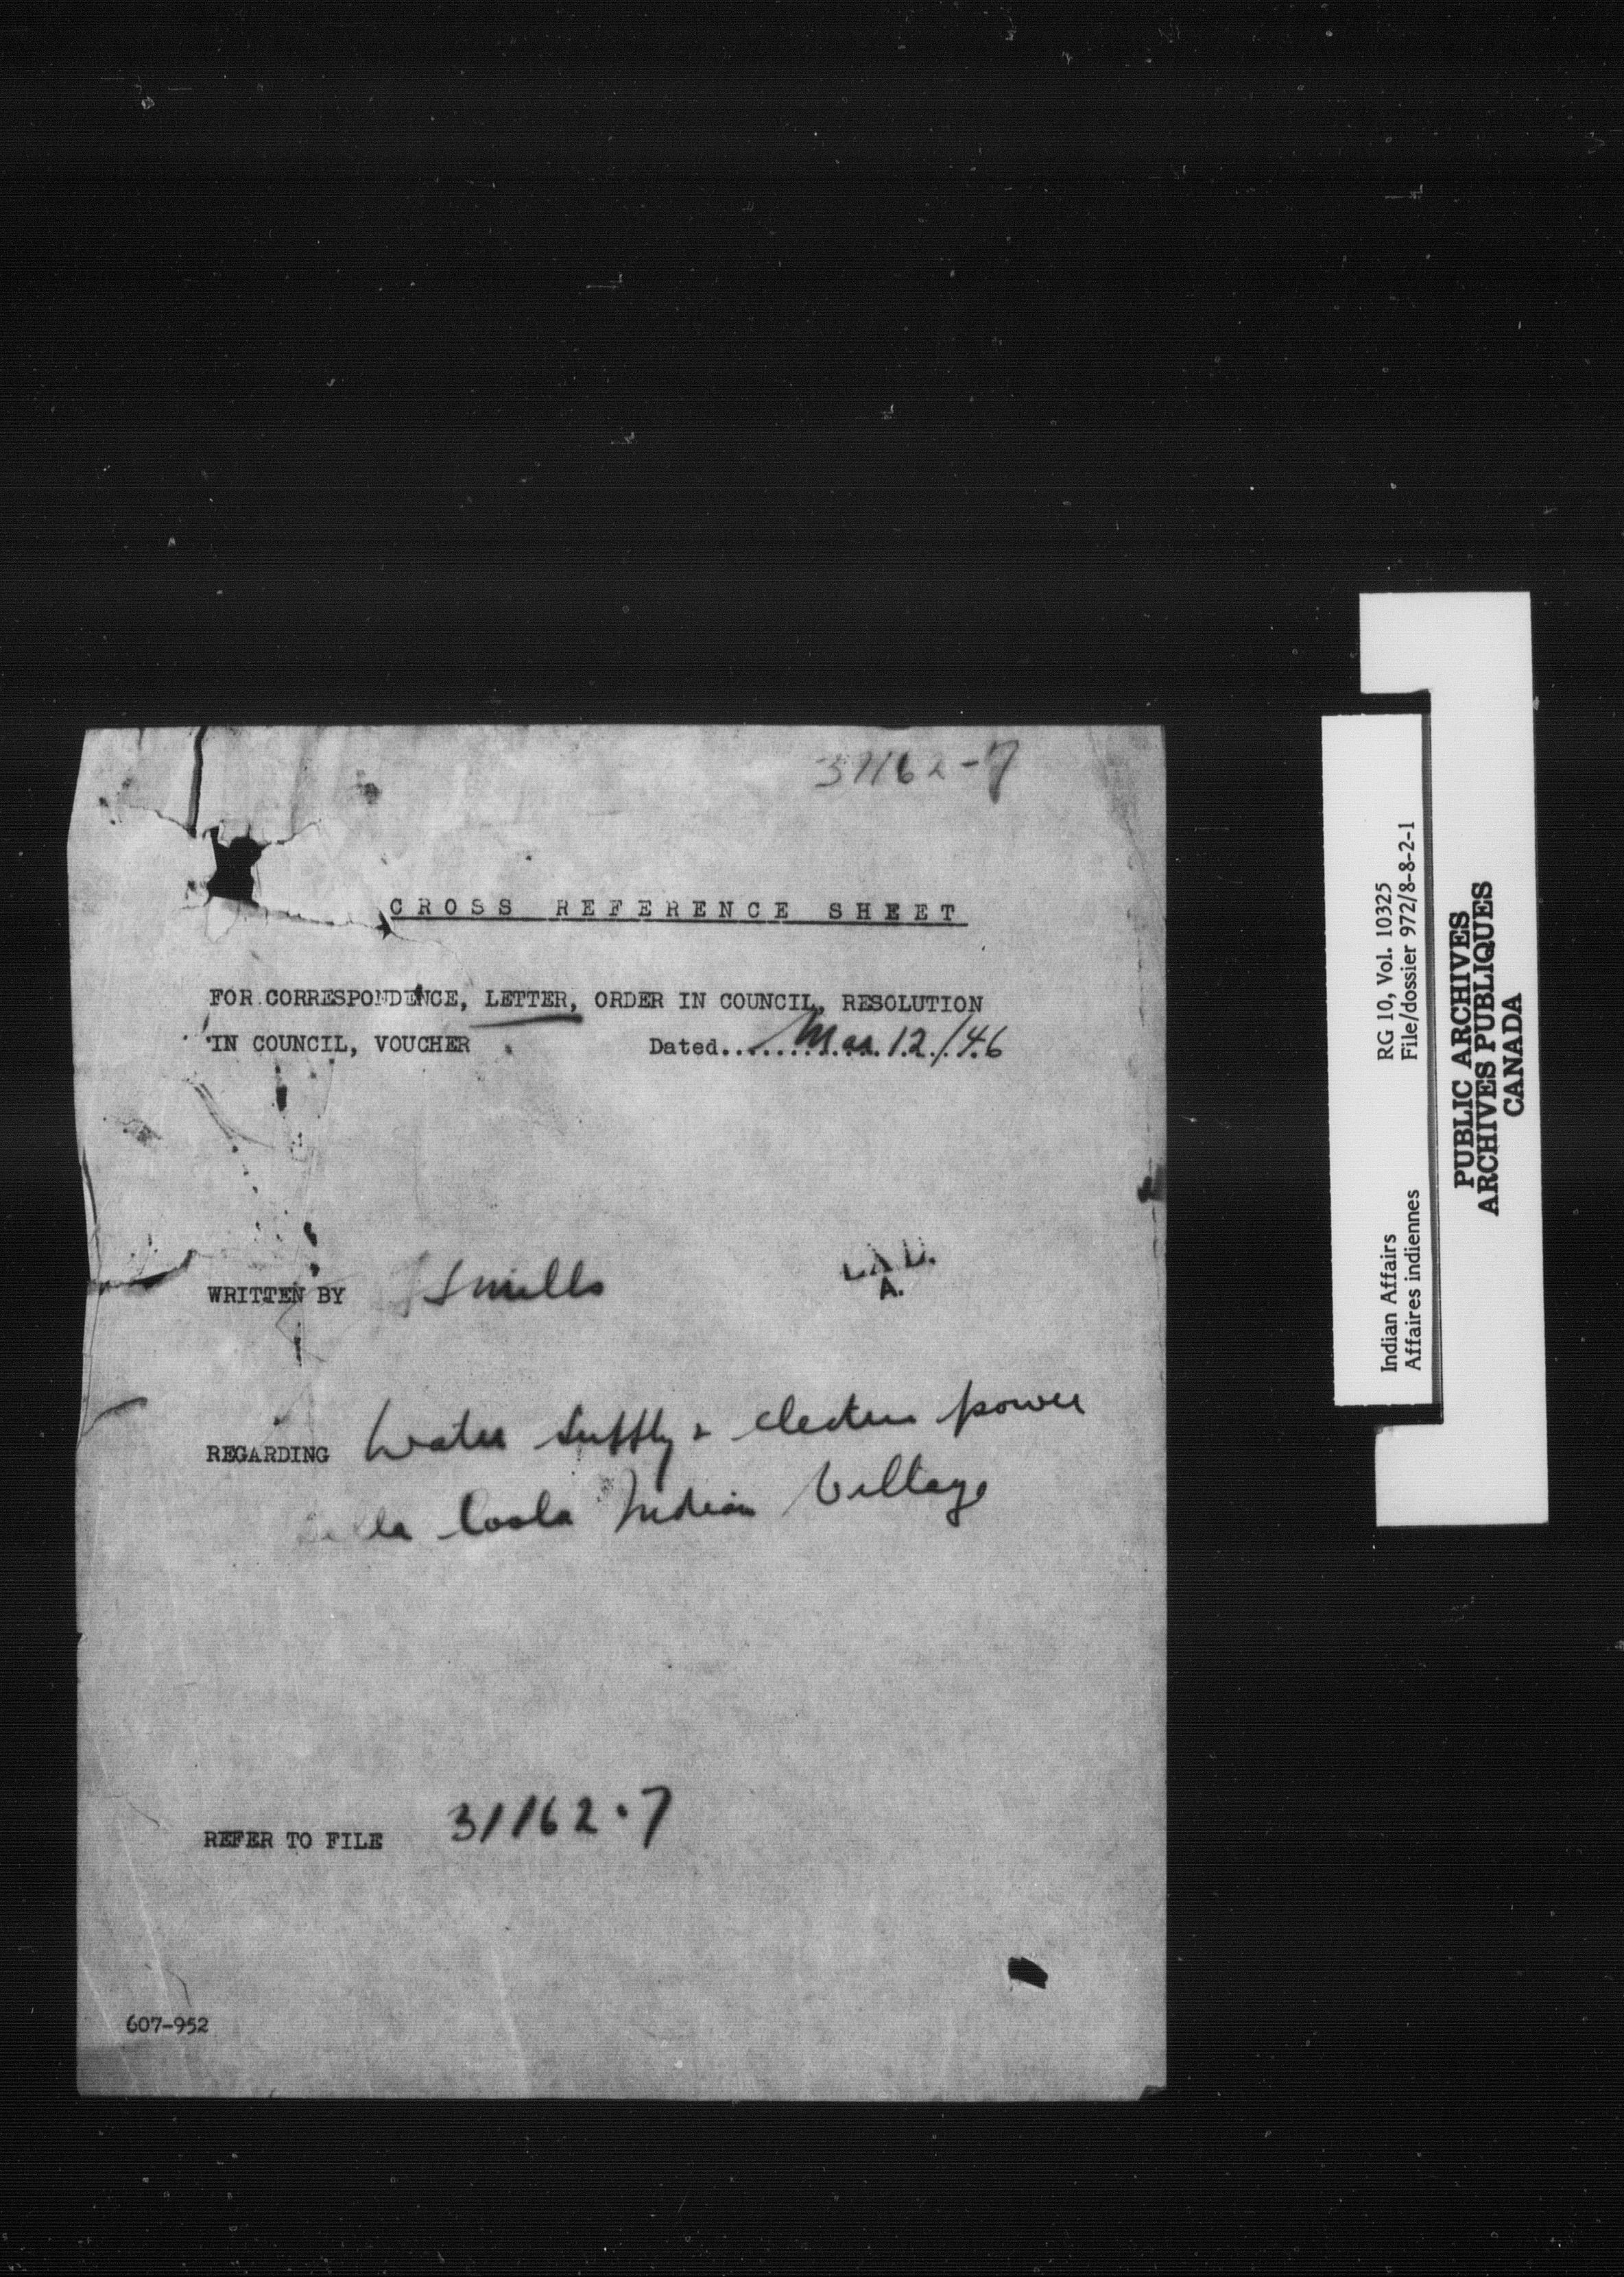 31162-7
CROSS REFERENCE SHEET
FOR CORRESPONDENCE, LETTER, ORDER IN COUNCIL, RESOLUTION
IN COUNCIL, VOUCHER Dated.............Mar 12/46
WRITTEN BY
A.
REGARDING Water Supply & electric power
Bella Coola Indian Village
REFER TO FILE 31162.7
607-952
Indian Affairs RG 10, Vol. 10325
Affaires indiennes File/dossier 972/8-8-2-1
PUBLIC ARCHIVES
ARCHIVES PUBLIQUES
CANADA